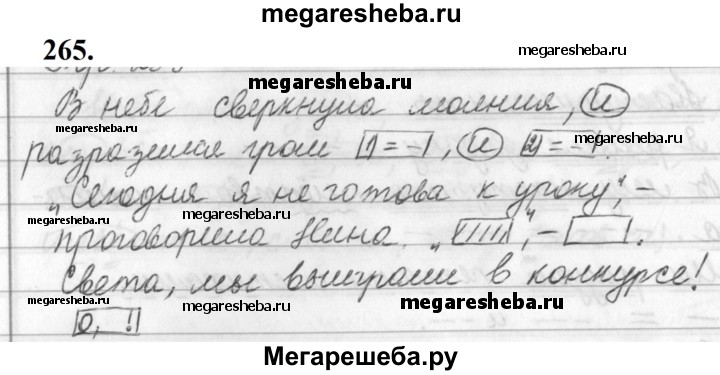 megaresheba.ru
265.
megaresheba.ru
В небе сверкнула молния, и
megaresheba.ru
megaresheba.ru
разразился гром [1 = -], и [2 = -].
„Сегодня я не готова к уроку", -
megaresheba.ru
megaresheba.ru
проговорила Нина. „[////]", - [ ].
Света, мы выиграли в конкурсе!
megaresheba.ru
megaresheba.ru
[О, !]
Мегарешеба.ру